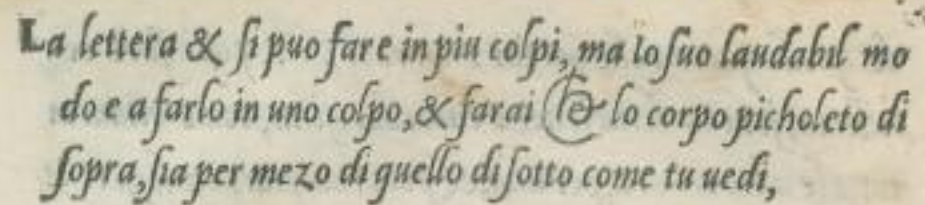 La lettera & ſi puo fare in piu colpi, ma lo ſuo laudabil mo
do e a farlo in uno colpo, & farai & lo corpo picholeto di
ſopra, ſia per mezo di quello di ſotto come tu uedi,